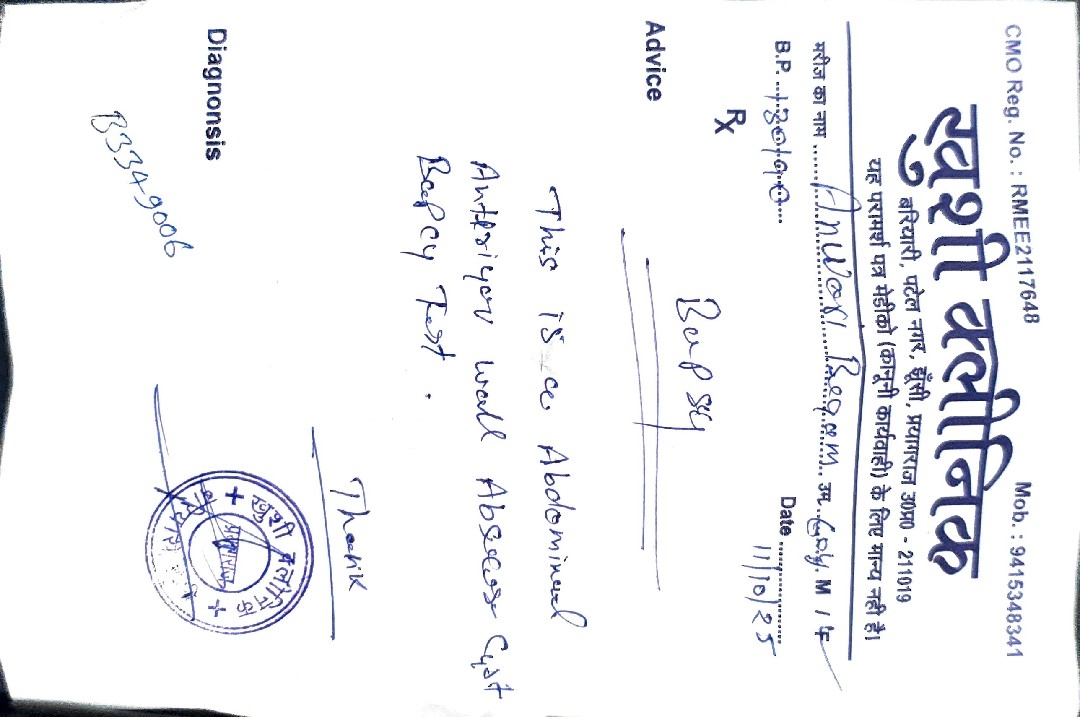 CMO Reg. No. : RMEE2117648 Mob. : 9415348341
खुशी क्लीनिक
बरियारी, पटेल नगर, झूँसी, प्रयागराज उ0प्र0 - 211019
यह परामर्श पत्र मेडीको (कानूनी कार्यवाही) के लिए मान्य नही है।
मरीज का नाम Anwari Begam उम्र 60y. M / F
B.P. 130/90 Date 11/10/25
Rx
Advice
Bapsy
This is a Abdominal
Antariyar wall Absecess Cyst
Bapcy Test.
Thanik
Diagnonsis
B3349006
खुशी क्लीनिक